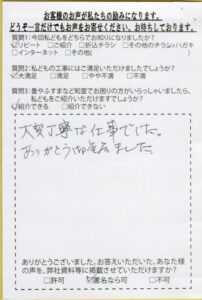 お客様のお声が私たちの励みになります。
どうぞ一言だけでもお声をお寄せください。お待ちしております。
質問1:今回私どもをどちらでお知りになりましたか?
☑リピート □ご紹介 □折込チラシ □その他のチラシ・ハガキ
□インターネット □その他(
質問2:私どもの工事にはご満足いただけましたでしょうか?
☑大満足 □満足 □やや不満 □不満
質問3:畳やふすまなど和室でお困りの方がいらっしゃいましたら、
私どもをご紹介いただけますでしょうか?
☑紹介できる □紹介できない
大変丁寧な仕事でした。
ありがとうございました
ありがとうございました。お答えいただいた、あなた様
の声を、弊社資料等に掲載させていただけますか?
□許可 ☑匿名なら可 □不可